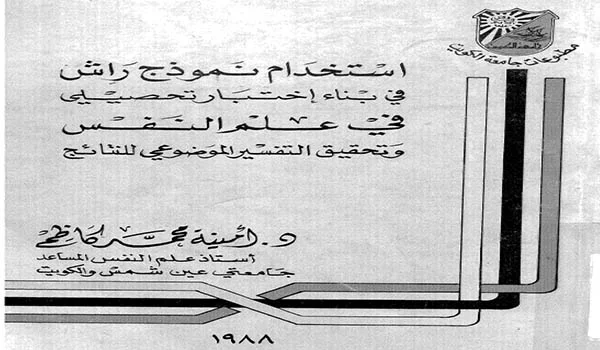 مطبوعات جامعة الكويت
استخدام نموذج راش
في بناء إختبار تحصيلي
في علم النفس
وتحقيق التفسير الموضوعي للنتائج
د. أمينة محمد كاظم
أستاذ علم النفس المساعد
جامعتي عين شمس والكويت
١٩٨٨